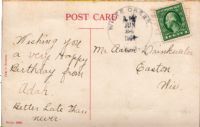 POST CARD
JUN
Wishing you
a very Happy
Birthday from
Adah.
Better Late Than
never.
Mr. Aaron Drinkwater
Easton
Wis.